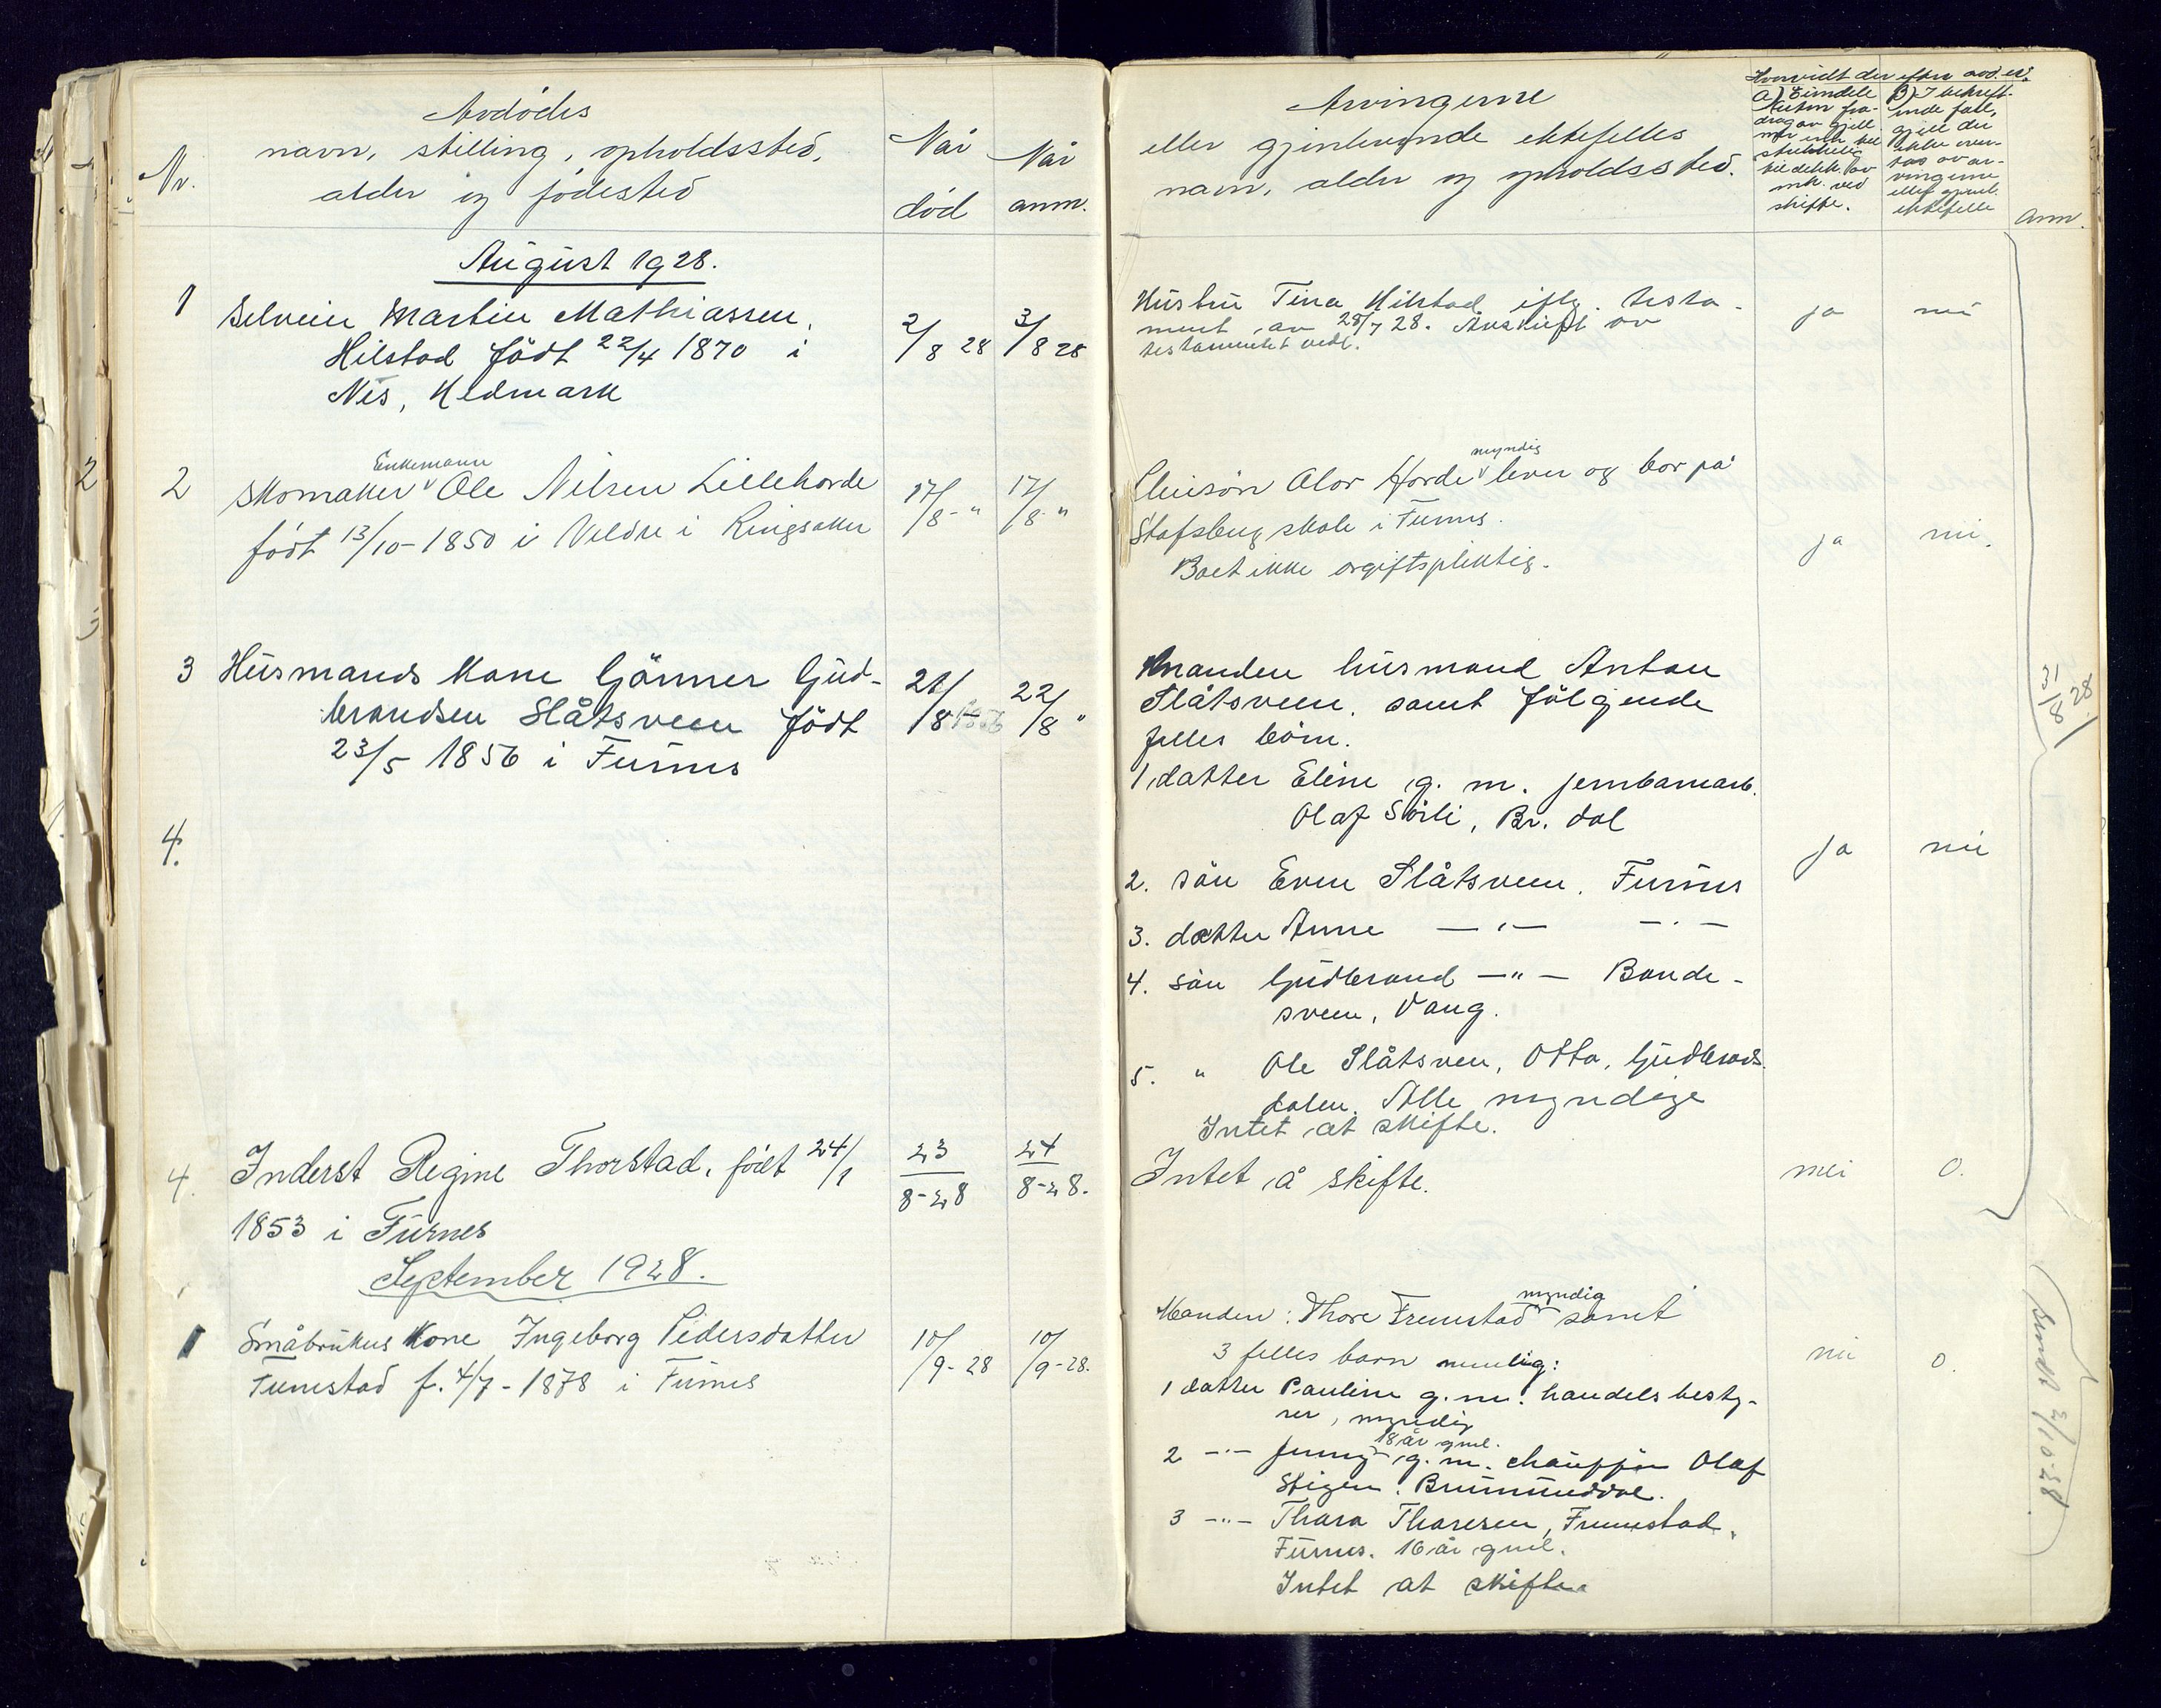 Avdødes
Nr. navn, stilling, opholdssted,
alder og fødested
Når
død
Når
anm.
August 1928.
1 Selveier Martin Mathiassen,
Hilstad födt 22/4 1870 i
Nes, Hedmark
2/8 28 3/8 28
2 Skomaker Enkemann Ole Nilsen Lillehorde
født 13/10-1850 i Veldre i Ringsaker
17/8-" 17/8-"
3 Húsmands kone Gjörner Gúd-
brandsen Slåtsveen födt
23/5 1856 i Fúrnes
21/8 22/8 "
4.
4. Inderst Regine Thorstad, født 24/1
1853 i Fúrnes
23/8-28 24/8-28.
September 1928.
1 Småbrúkers kone Ingeborg Pedersdatter
f. 4/7-1878 i Fúrnes
10/9-28 10/9-28.
Arvingerne
eller gjenlevende ektefelles
navn, alder og opholdssted.
Hvorvidt der efter avd. er:
a) Eiendele
B) I bekreft-
ende fall,
gjeld der
ikke over-
tas av ar-
vingerne
eller gjenl.
ektefelle
skifte.
Anm.
Hústrú Tina Hilstad iflg. testa-
ment av 28/7 28. Avskrift av
testamentet vedl.
ja nei
Eneisön Olav Horde myndig lever og bor på
Stafsberg skole i Furnes.
Boet ikke avgiftspliktig.
ja nei.
Manden húsmand Anton
Slåtsveen, samt fölgende
felles börn.
1, datter Eline g. m. jernbanearb.
Olaf Sörli, Br. dal
ja nei
2. sön Even Slåtsveen, Fúrnes
3. datter Anne — " — — " —
4. sön Gúdbrand — " — Bonde-
sveen, Vang.
5. " Ole Slåtsveen, Otta, Gúdbrands-
dalen. Alle myndige
Intet at skifte.
Intet å skifte.
nei 0.
31/8 28
Manden: Thore Fremstad myndig samt
3 felles barn nemlig:
nei 0.
1 datter Pauline g. m. handelsbesty-
rer, myndig
2 — " — Jenny 18 år gml. g. m. chauffør Olaf
Stigen, Brúmúnddal.
3 — " — Thora Thoresen, Fremstad,
Fúrnes. 16 år gml.
Intet at skifte.
Sendt 2/10 28